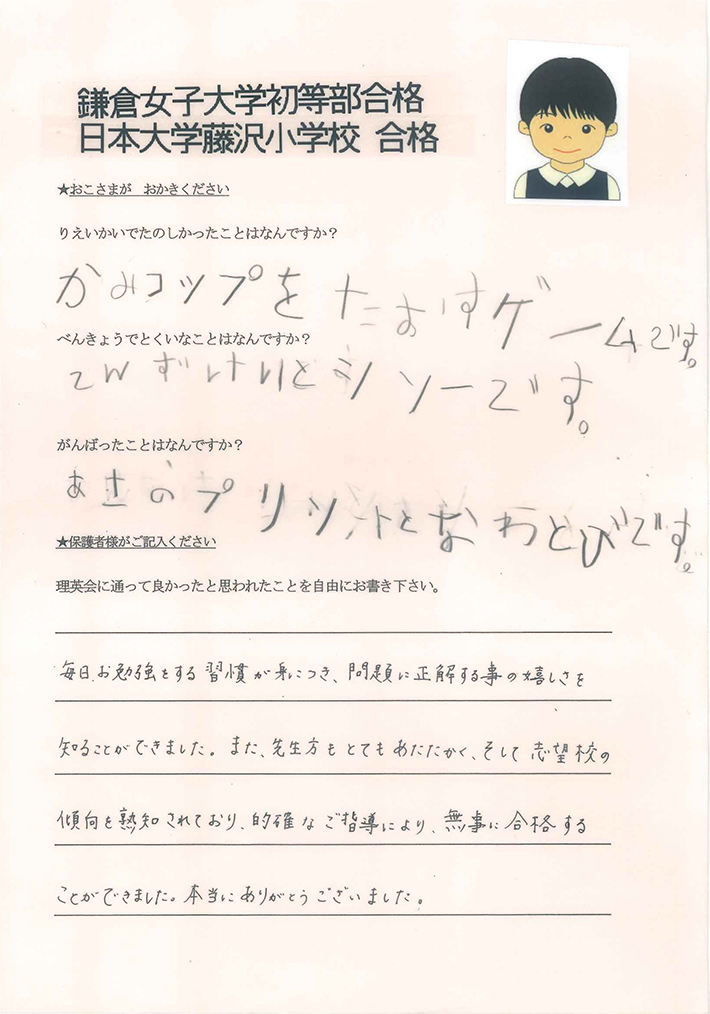 鎌倉女子大学初等部合格
日本大学藤沢小学校 合格
★おこさまが おかきください
りえいかいでたのしかったことはなんですか？
かみコップを たおすゲームです。
べんきょうでとくいなことはなんですか？
てんずけいとシソーです。
がんばったことはなんですか？
あさのプリントとなわとびです。
★保護者様がご記入ください
理英会に通って良かったと思われたことを自由にお書き下さい。
毎日、お勉強をする習慣が身につき、問題に正解する事の嬉しさを
知ることができました。また、先生方もとてもあたたかく、そして志望校の
傾向を熟知されており、的確なご指導により、無事に合格する
ことができました。本当にありがとうございました。